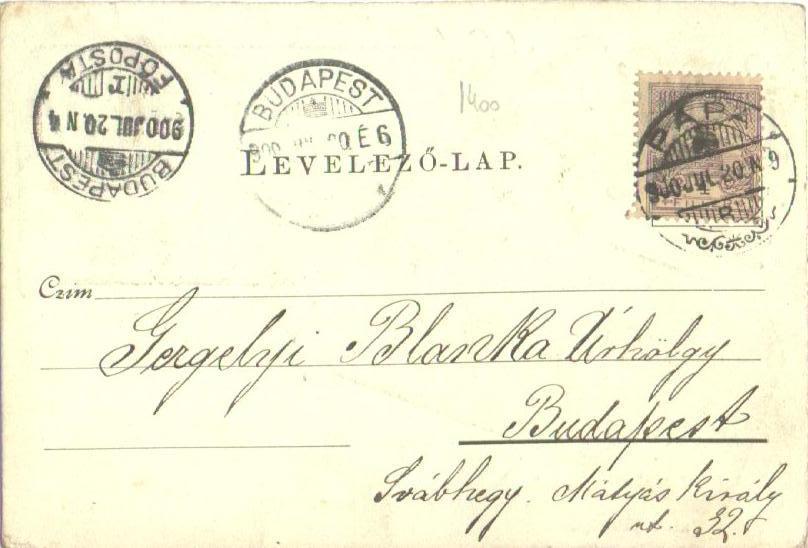 BUDAPEST
FŐPOSTA
I.
900 JUL. 20. N 4
BUDAPEST
É 6
1400
PÁPA
900 JUL 20. N 9
LEVELEZŐ-LAP.
Czím
Gergelyi Blanka Úrhölgy
Budapest
Svábhegy. Mátyás Király
ut. 32.